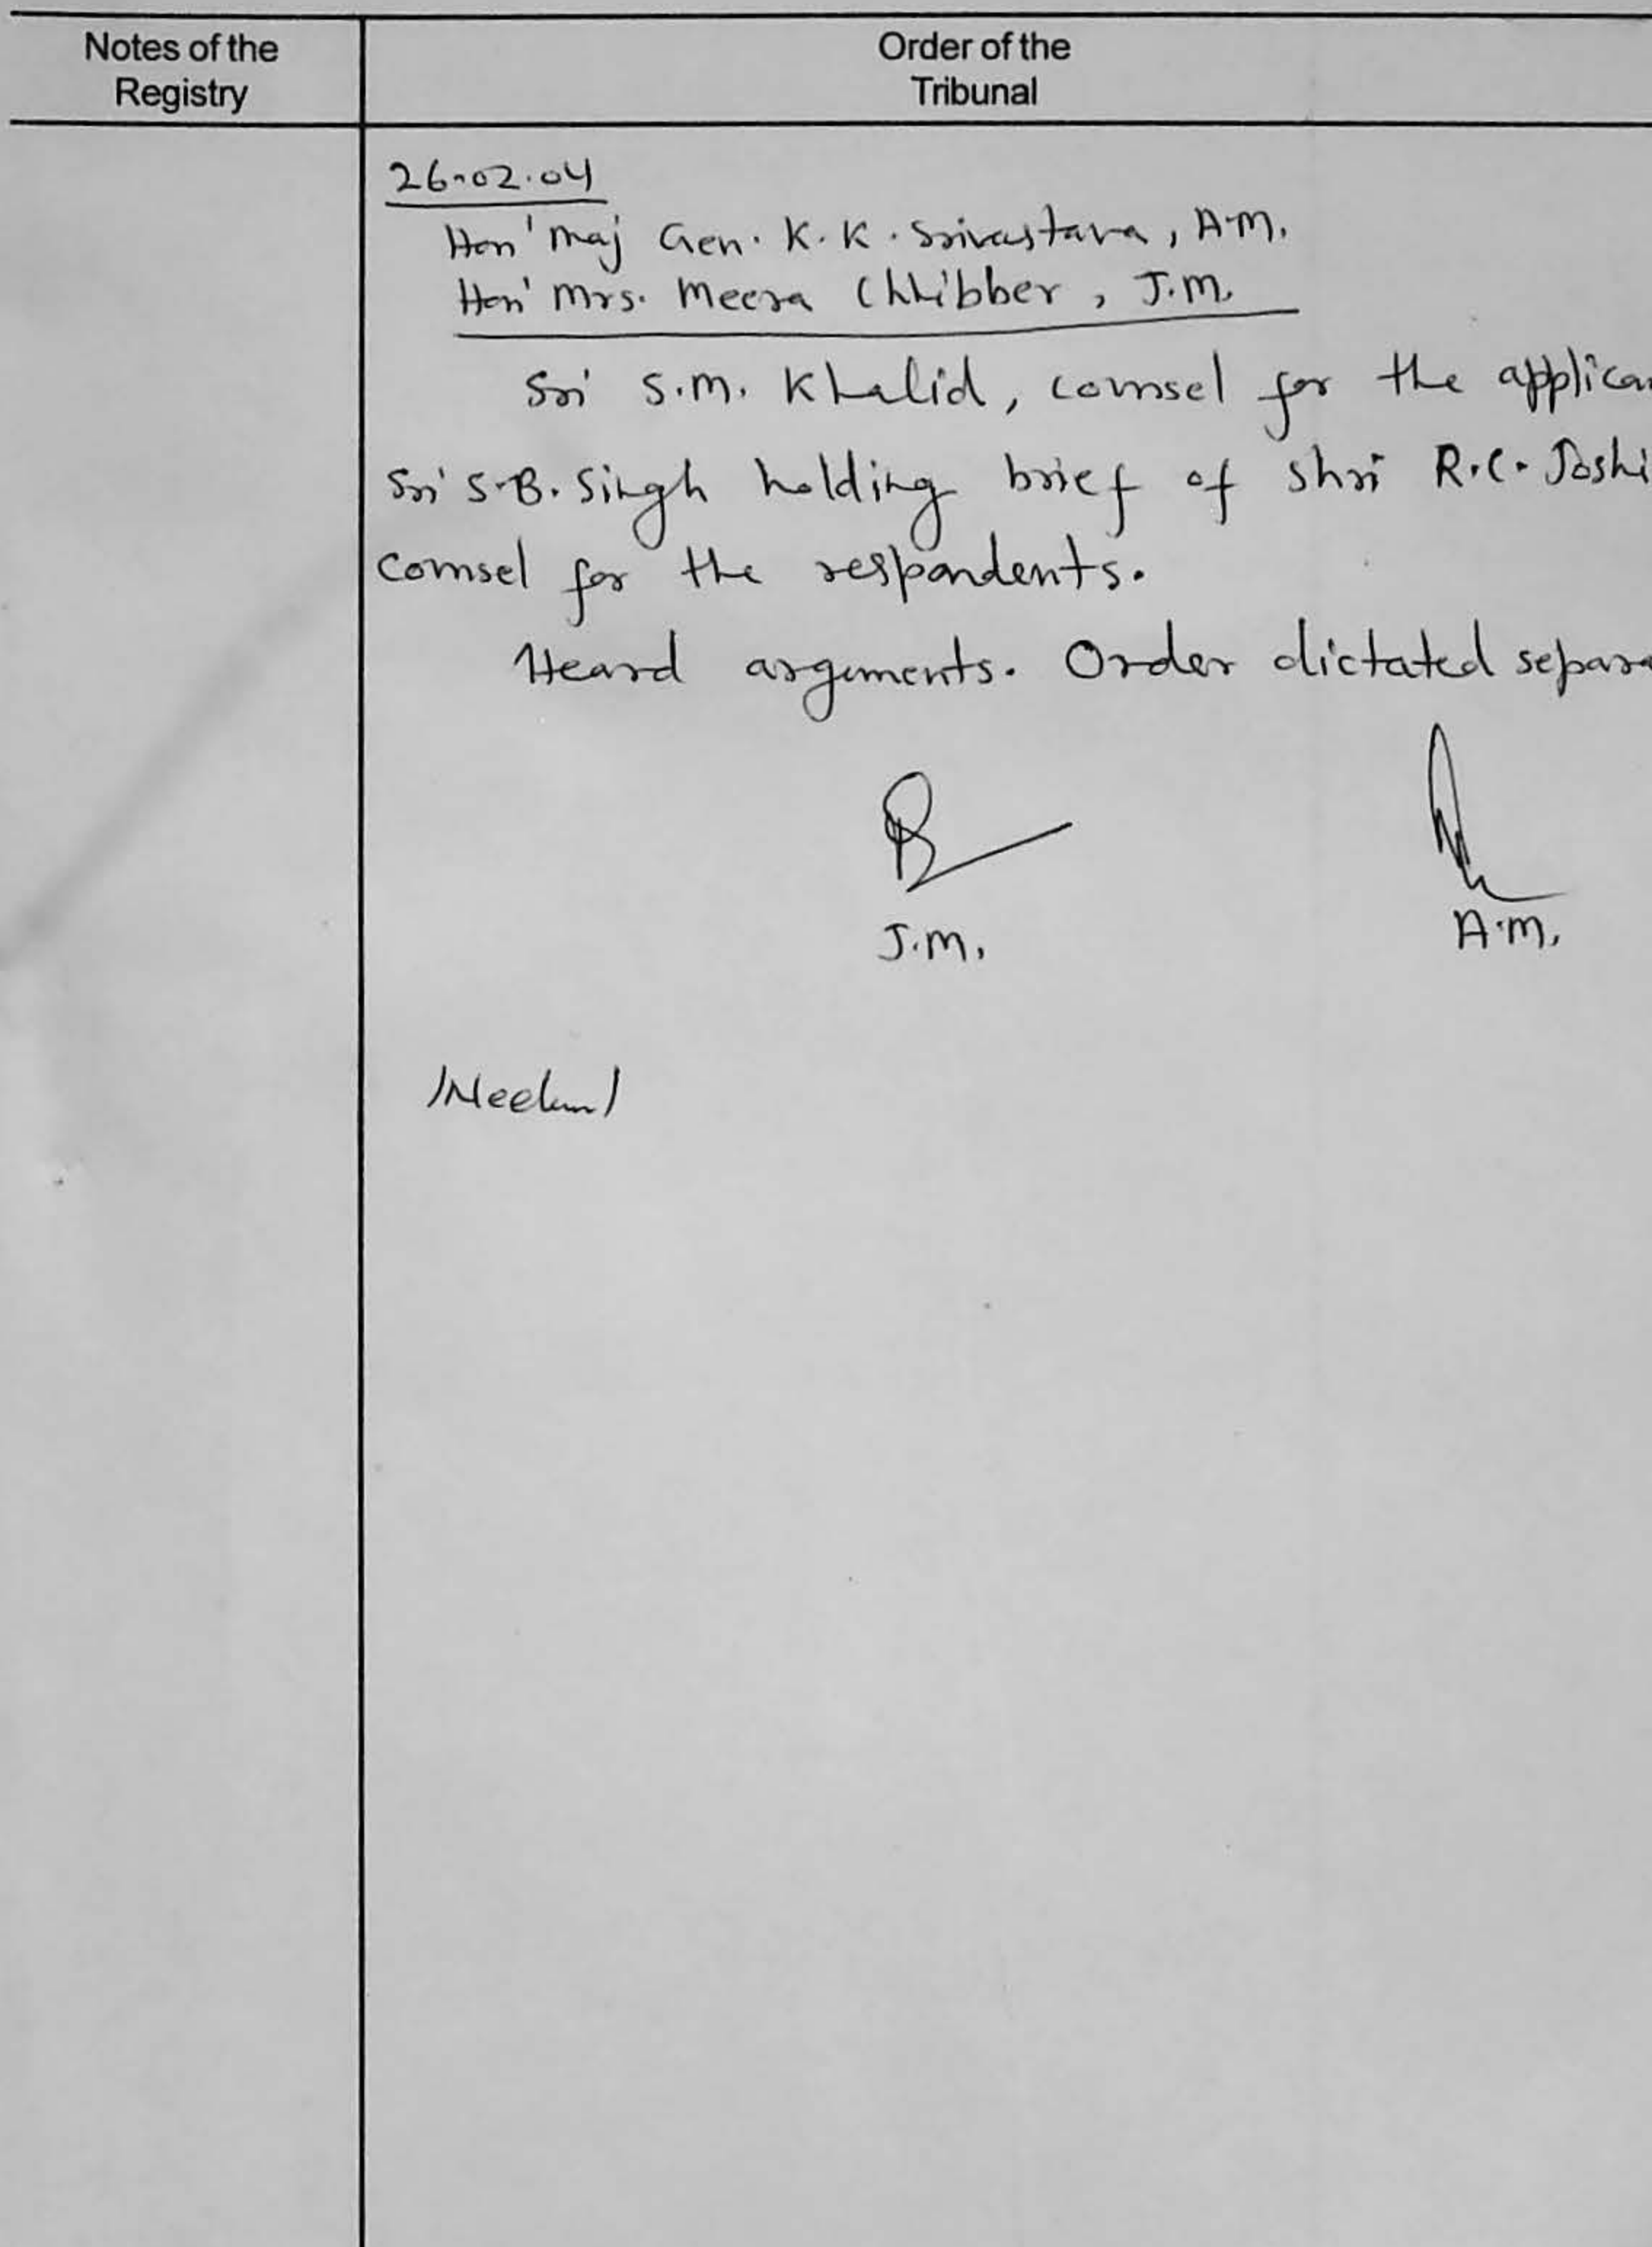 Notes of the
Registry
Order of the
Tribunal
26-02.04
Hon' Maj Gen. K.K. Srivastava, A.M.
Hon' Mrs. Meera Chhibber, J.M.
Sri S.M. Khalid, counsel for the applican
Sri S.B. Singh holding brief of Shri R.C. Joshi
counsel for the respondents.
Heard arguments. Order dictated separa
J.M.
A.M.
/Neelam/